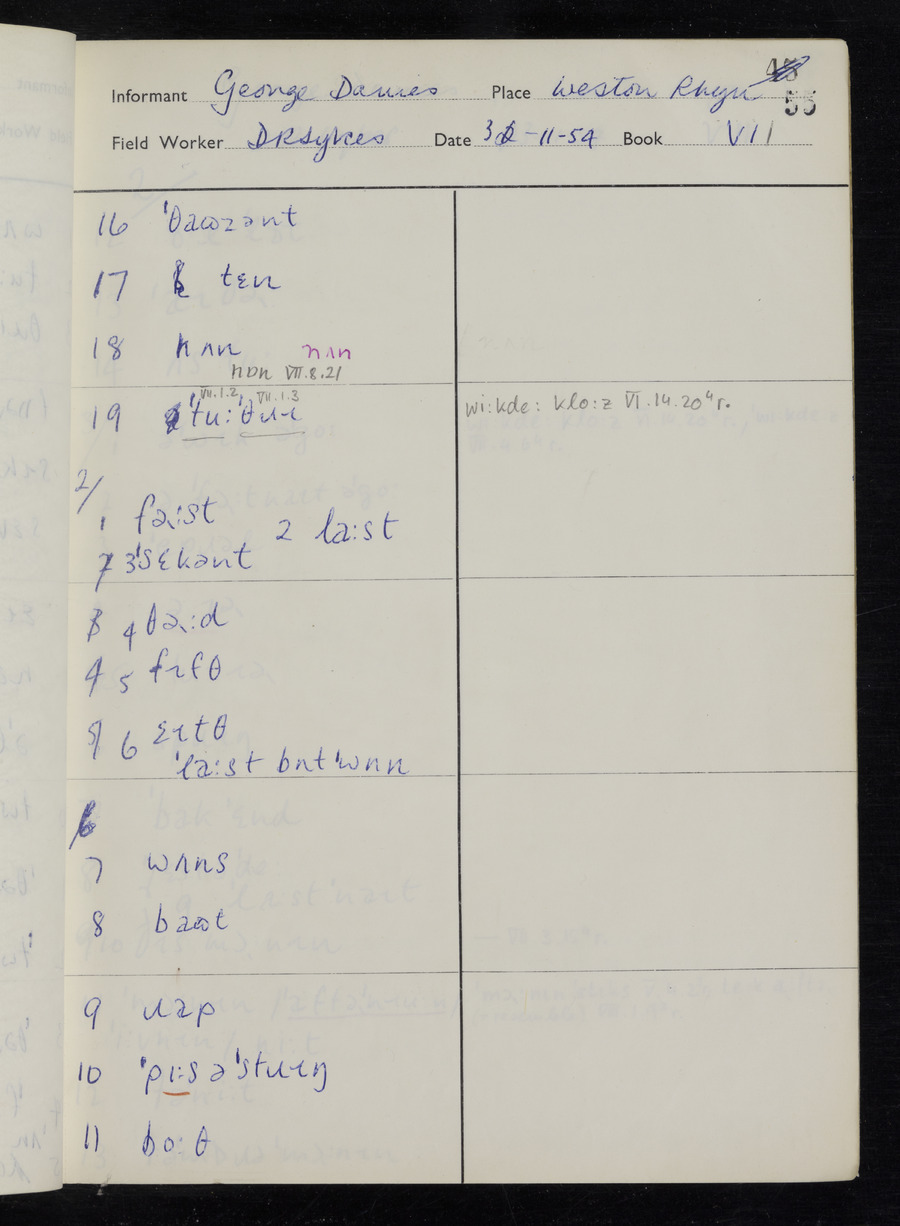 Informant George Davies Place Weston Rhyn
55
Field Worker DRSykes Date 3 -11-54 Book VII
16 ˈθaʊzənt
17 tɛn
18 nʌn nʌn
nɒn VII.8.21
VII.1.2 VII.1.3
19 ˈtuːˈθɹɪ wiːkdeː kloːz VI.14.20⁴r.
2/
1 fəɹːst 2 laːst
3 ˈsɛkənt
4 θəɹːd
5 fɪfθ
6 ɛɪtθ
ˈlaːst bʊtˈwʌn
7 wʌns
8 baʊt
9 ɹap
10 ˈpɪːs əˈstɹɪŋ
11 boːθ